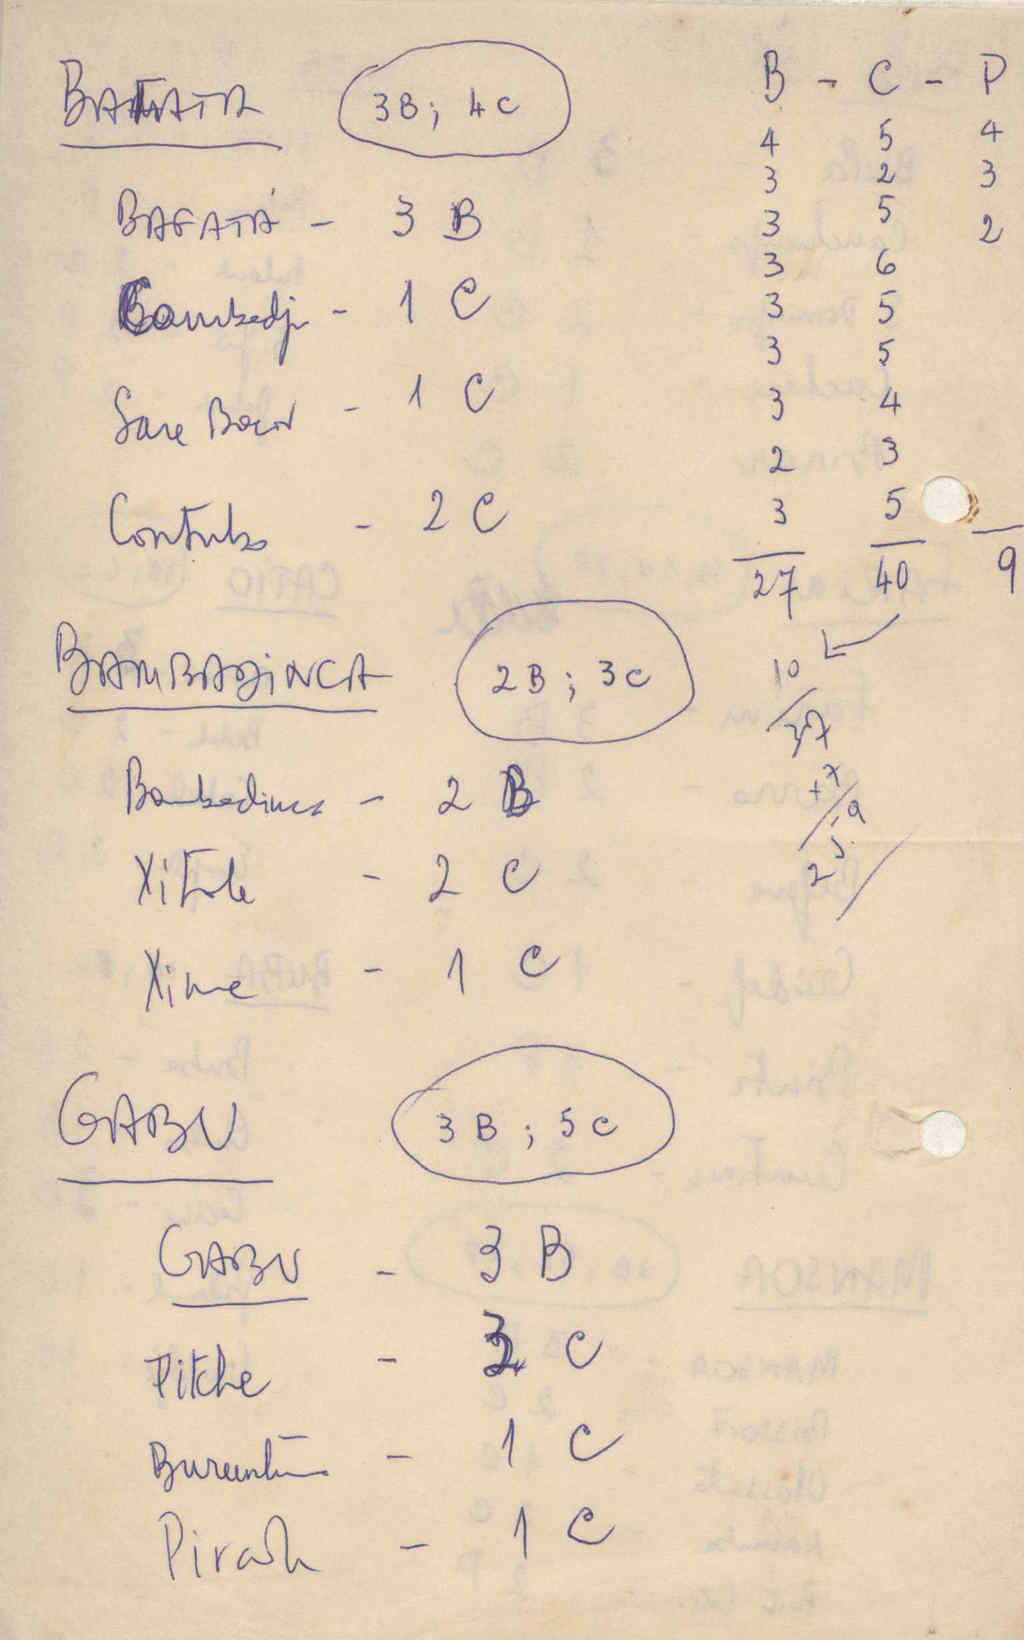 BAFATA 3B; 4C
BAFATÁ - 3 B
Cambadj - 1 C
Sare Bacar - 1 C
Contubo - 2 C
BAMBADINCA 2B; 3C
Bambadinca - 2 B
Xitole - 2 C
Xime - 1 C
GABU 3B; 5C
GABU - 3 B
Pitche - 3 C
Buruntu - 1 C
Pirada - 1 C
B - C - P
4 5 4
3 2 3
3 5 2
3 6
3 5
3 5
3 4
2 3
3 5
27 40 9
10
37
+7
59
2